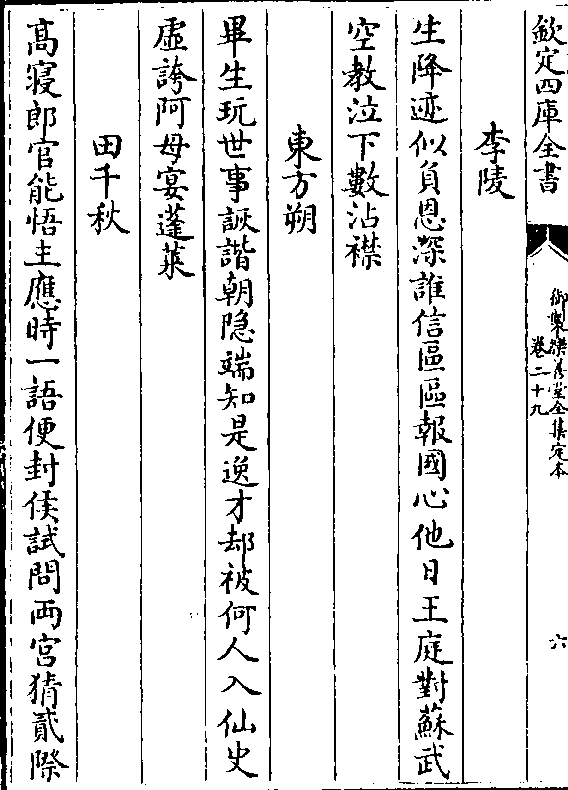 欽定四庫全書
御製樂善堂全集定本
卷二十九
六
李陵
生降迹似負恩深誰信區區報國心他日王庭對蘇武
空教泣下數沾襟
東方朔
畢生玩世事詼諧朝隐端知是逸才却被何人入仙史
虛誇阿母宴蓬萊
田千秋
高寢郎官能悟主應時一語便封侯試問兩宮猜貳際